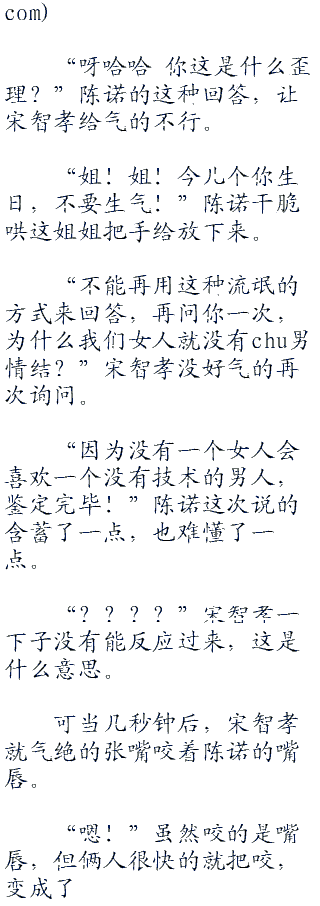 com)
“呀哈哈 你这是什么歪
理？”陈诺的这种回答，让
宋智孝给气的不行。
“姐！姐！今儿个你生
日，不要生气！”陈诺干脆
哄这姐姐把手给放下来。
“不能再用这种流氓的
方式来回答，再问你一次，
为什么我们女人就没有chu男
情结？”宋智孝没好气的再
次询问。
“因为没有一个女人会
喜欢一个没有技术的男人，
鉴定完毕！”陈诺这次说的
含蓄了一点，也难懂了一
点。
“？？？？”宋智孝一
下子没有能反应过来，这是
什么意思。
可当几秒钟后，宋智孝
就气绝的张嘴咬着陈诺的嘴
唇。
“嗯！”虽然咬的是嘴
唇，但俩人很快的就把咬，
变成了